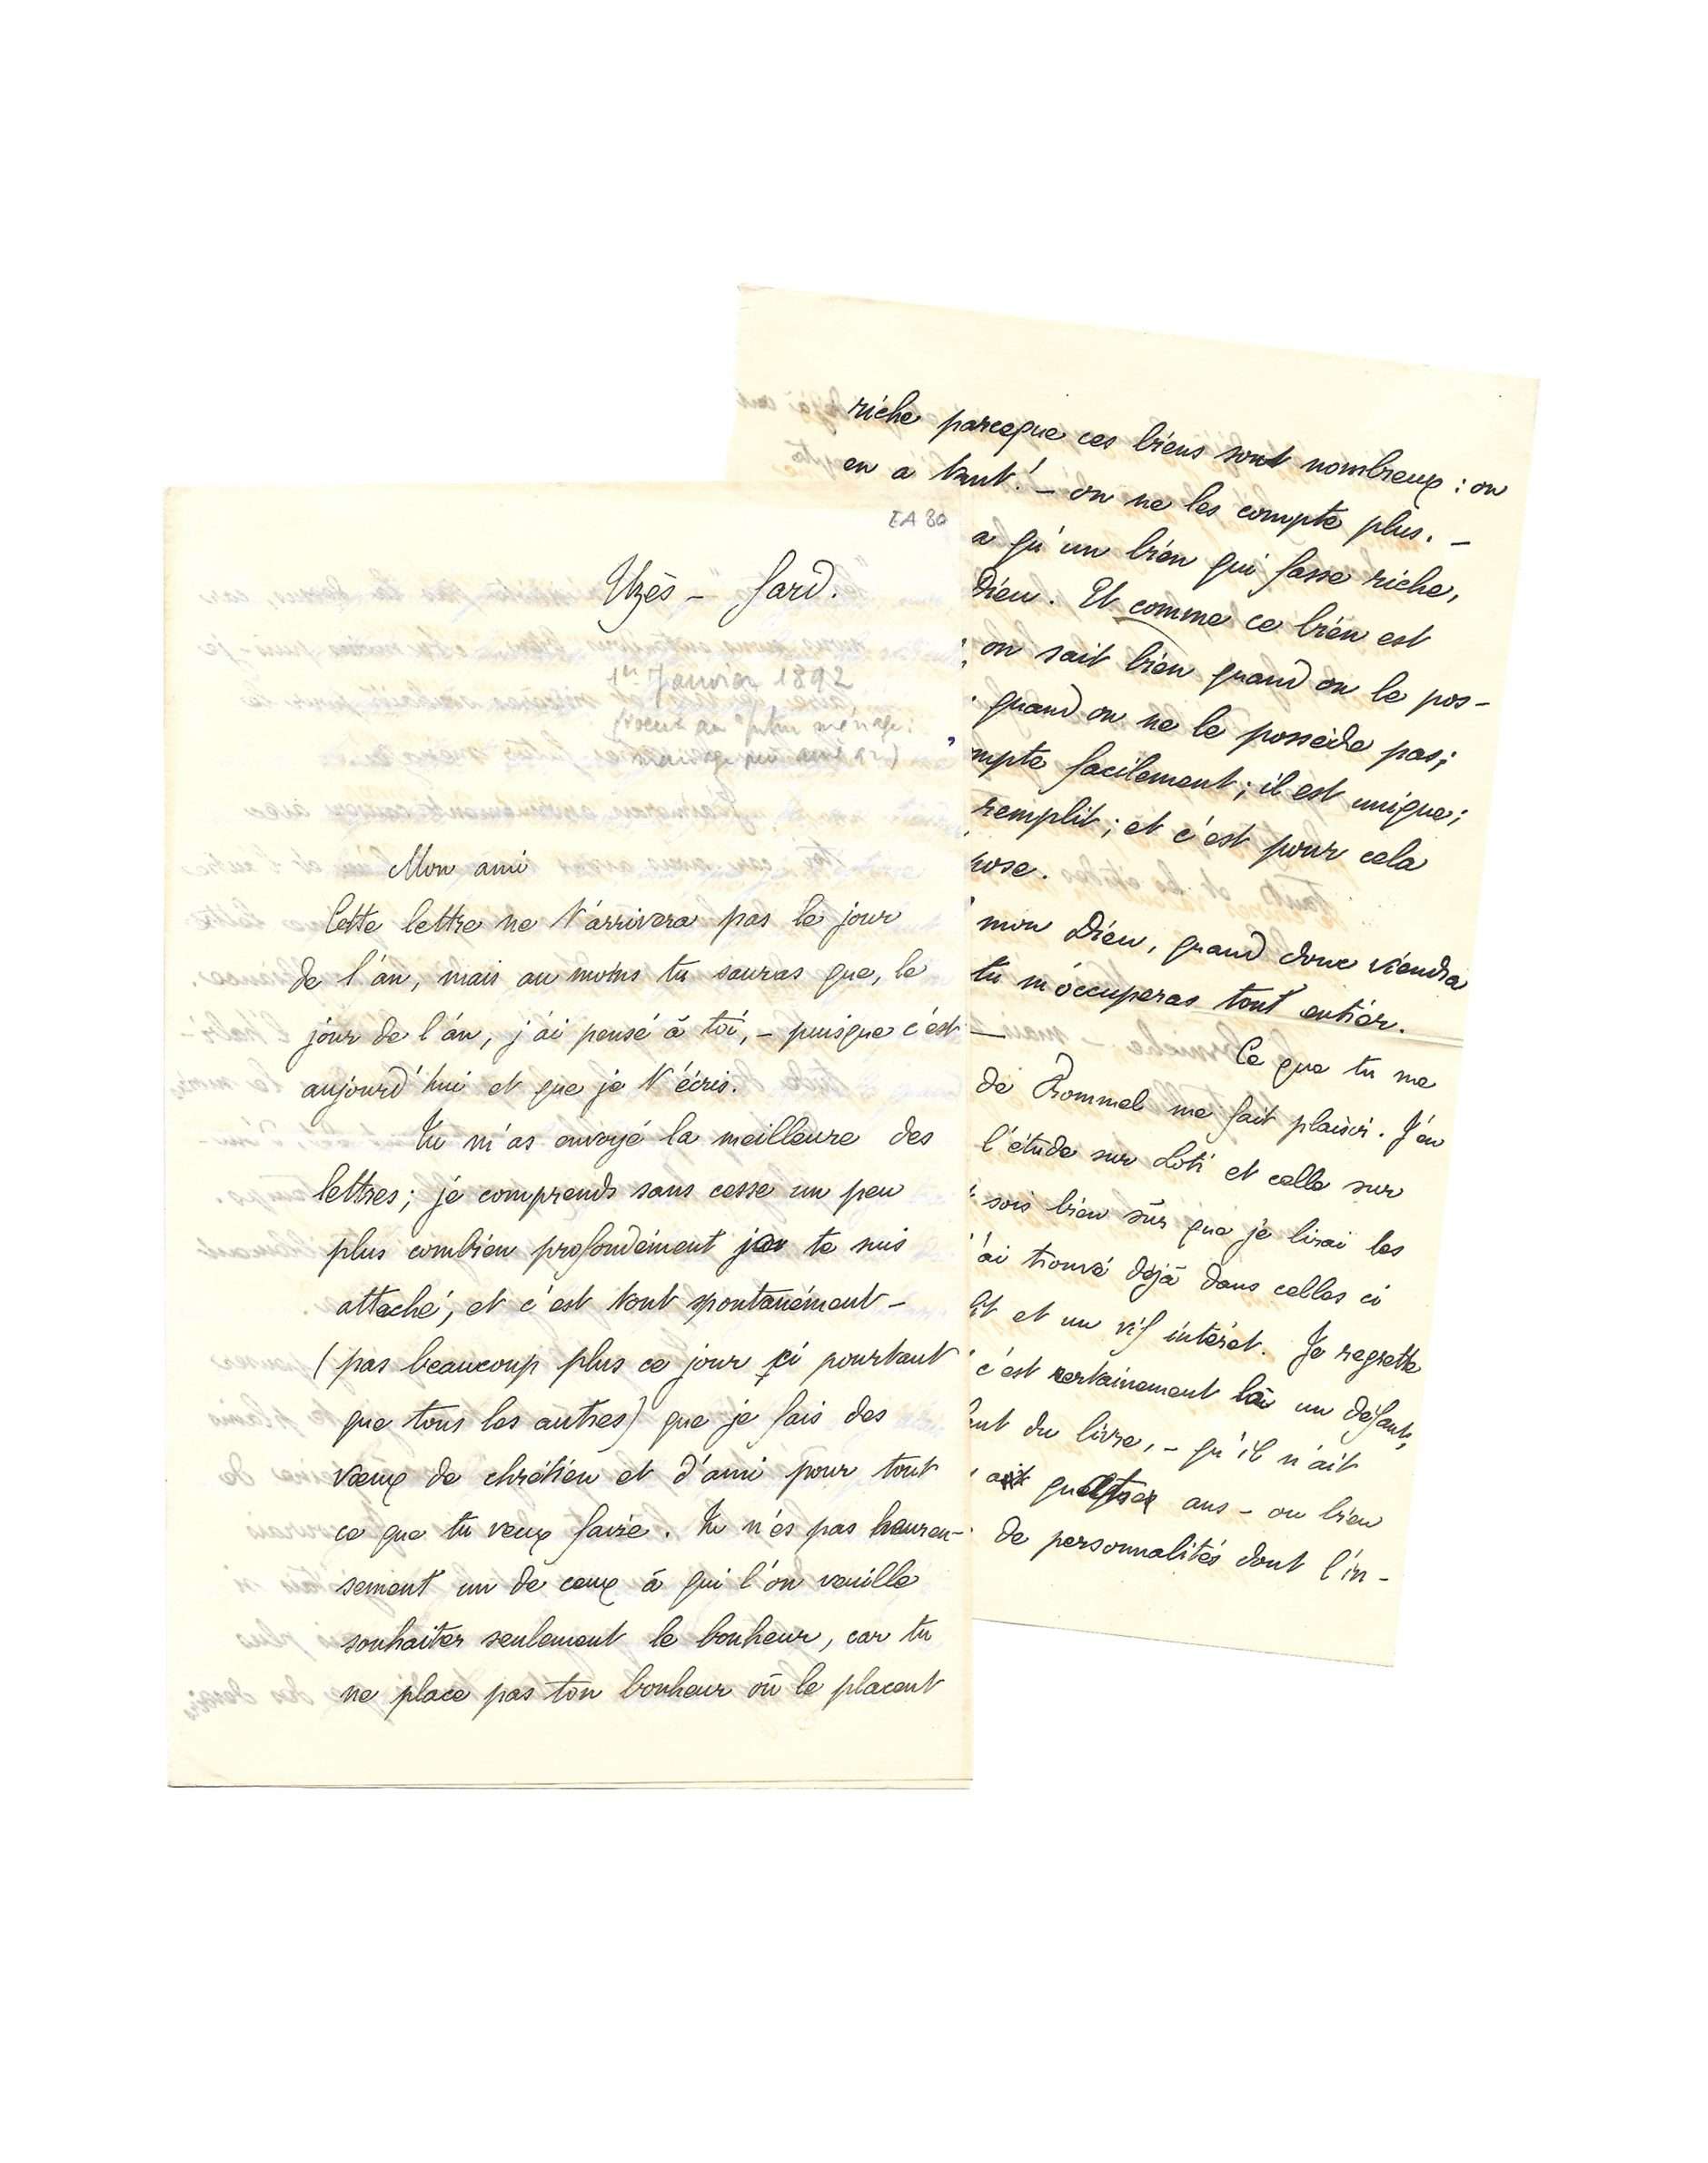 EA 80
Uzès – Gard.
1er Janvier 1892
(voeux au futur ménage:
Mon ami
Cette lettre ne t'arrivera pas le jour
de l'an, mais au moins tu sauras que, le
jour de l'an, j'ai pensé à toi, – puisque c'est
aujourd'hui et que je t'écris.
Tu m'as envoyé la meilleure des
lettres; je comprends sans cesse un peu
plus combien profondément je te suis
attaché, et c'est tout spontanément –
(pas beaucoup plus ce jour ci pourtant
que tous les autres) que je fais des
vœux de chrétien et d'ami pour tout
ce que tu veux faire. Tu n'es pas heureu-
sement un de ceux à qui l'on veuille
souhaiter seulement le bonheur, car tu
ne place pas ton bonheur où le placent
riche parceque ces biens sont nombreux : on
en a tant! – on ne les compte plus. –
a qu'un bien qui fasse riche,
Dieu. Et comme ce bien est
on sait bien quand on le pos-
quand on ne le possède pas;
mpte facilement; il est unique;
remplit; et c'est pour cela
ose.
mon Dieu, quand donc viendra
tu m'occuperas tout entier.
– Ce que tu me
de Rommel me fait plaisir. J'en
l'étude sur Loti et celle sur
sois bien sûr que je lirai les
'ai trouvé déjà dans celles ci
et un vif intérêt. Je regrette
c'est certainement là un défaut,
ent du livre, – qu'il n'ait
ans – ou bien
de personnalités dont l'in-